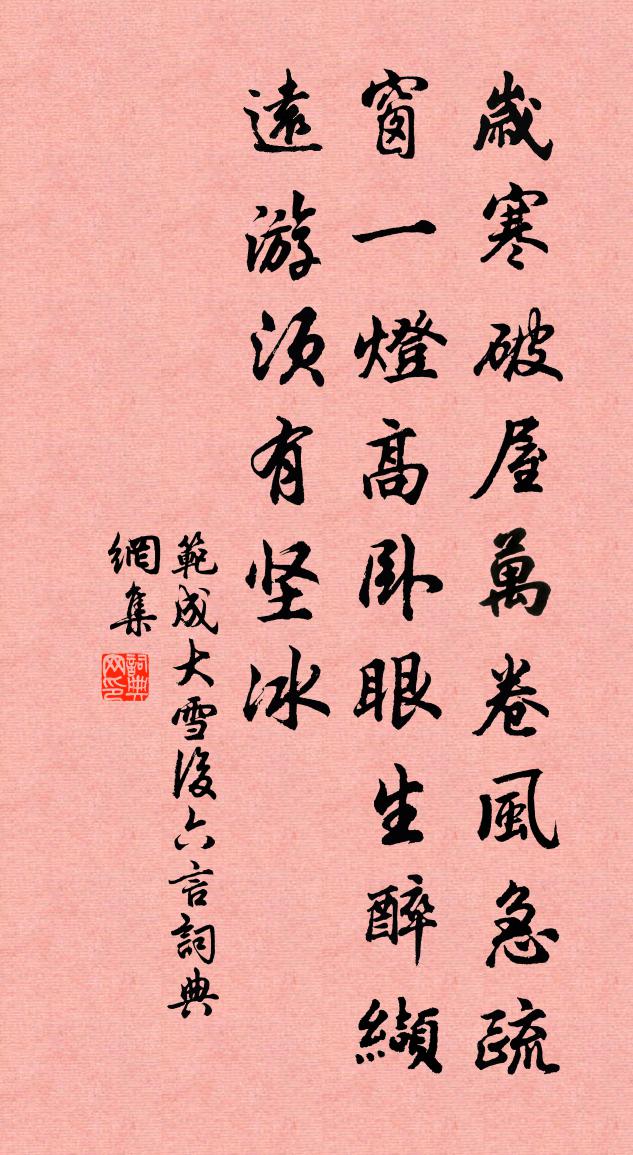 歲寒破屋萬卷風急疏
窗一燈高臥眼生醉纈
遠游須有坚冰
範成大雪後六言詞典
網集
詞典
网印